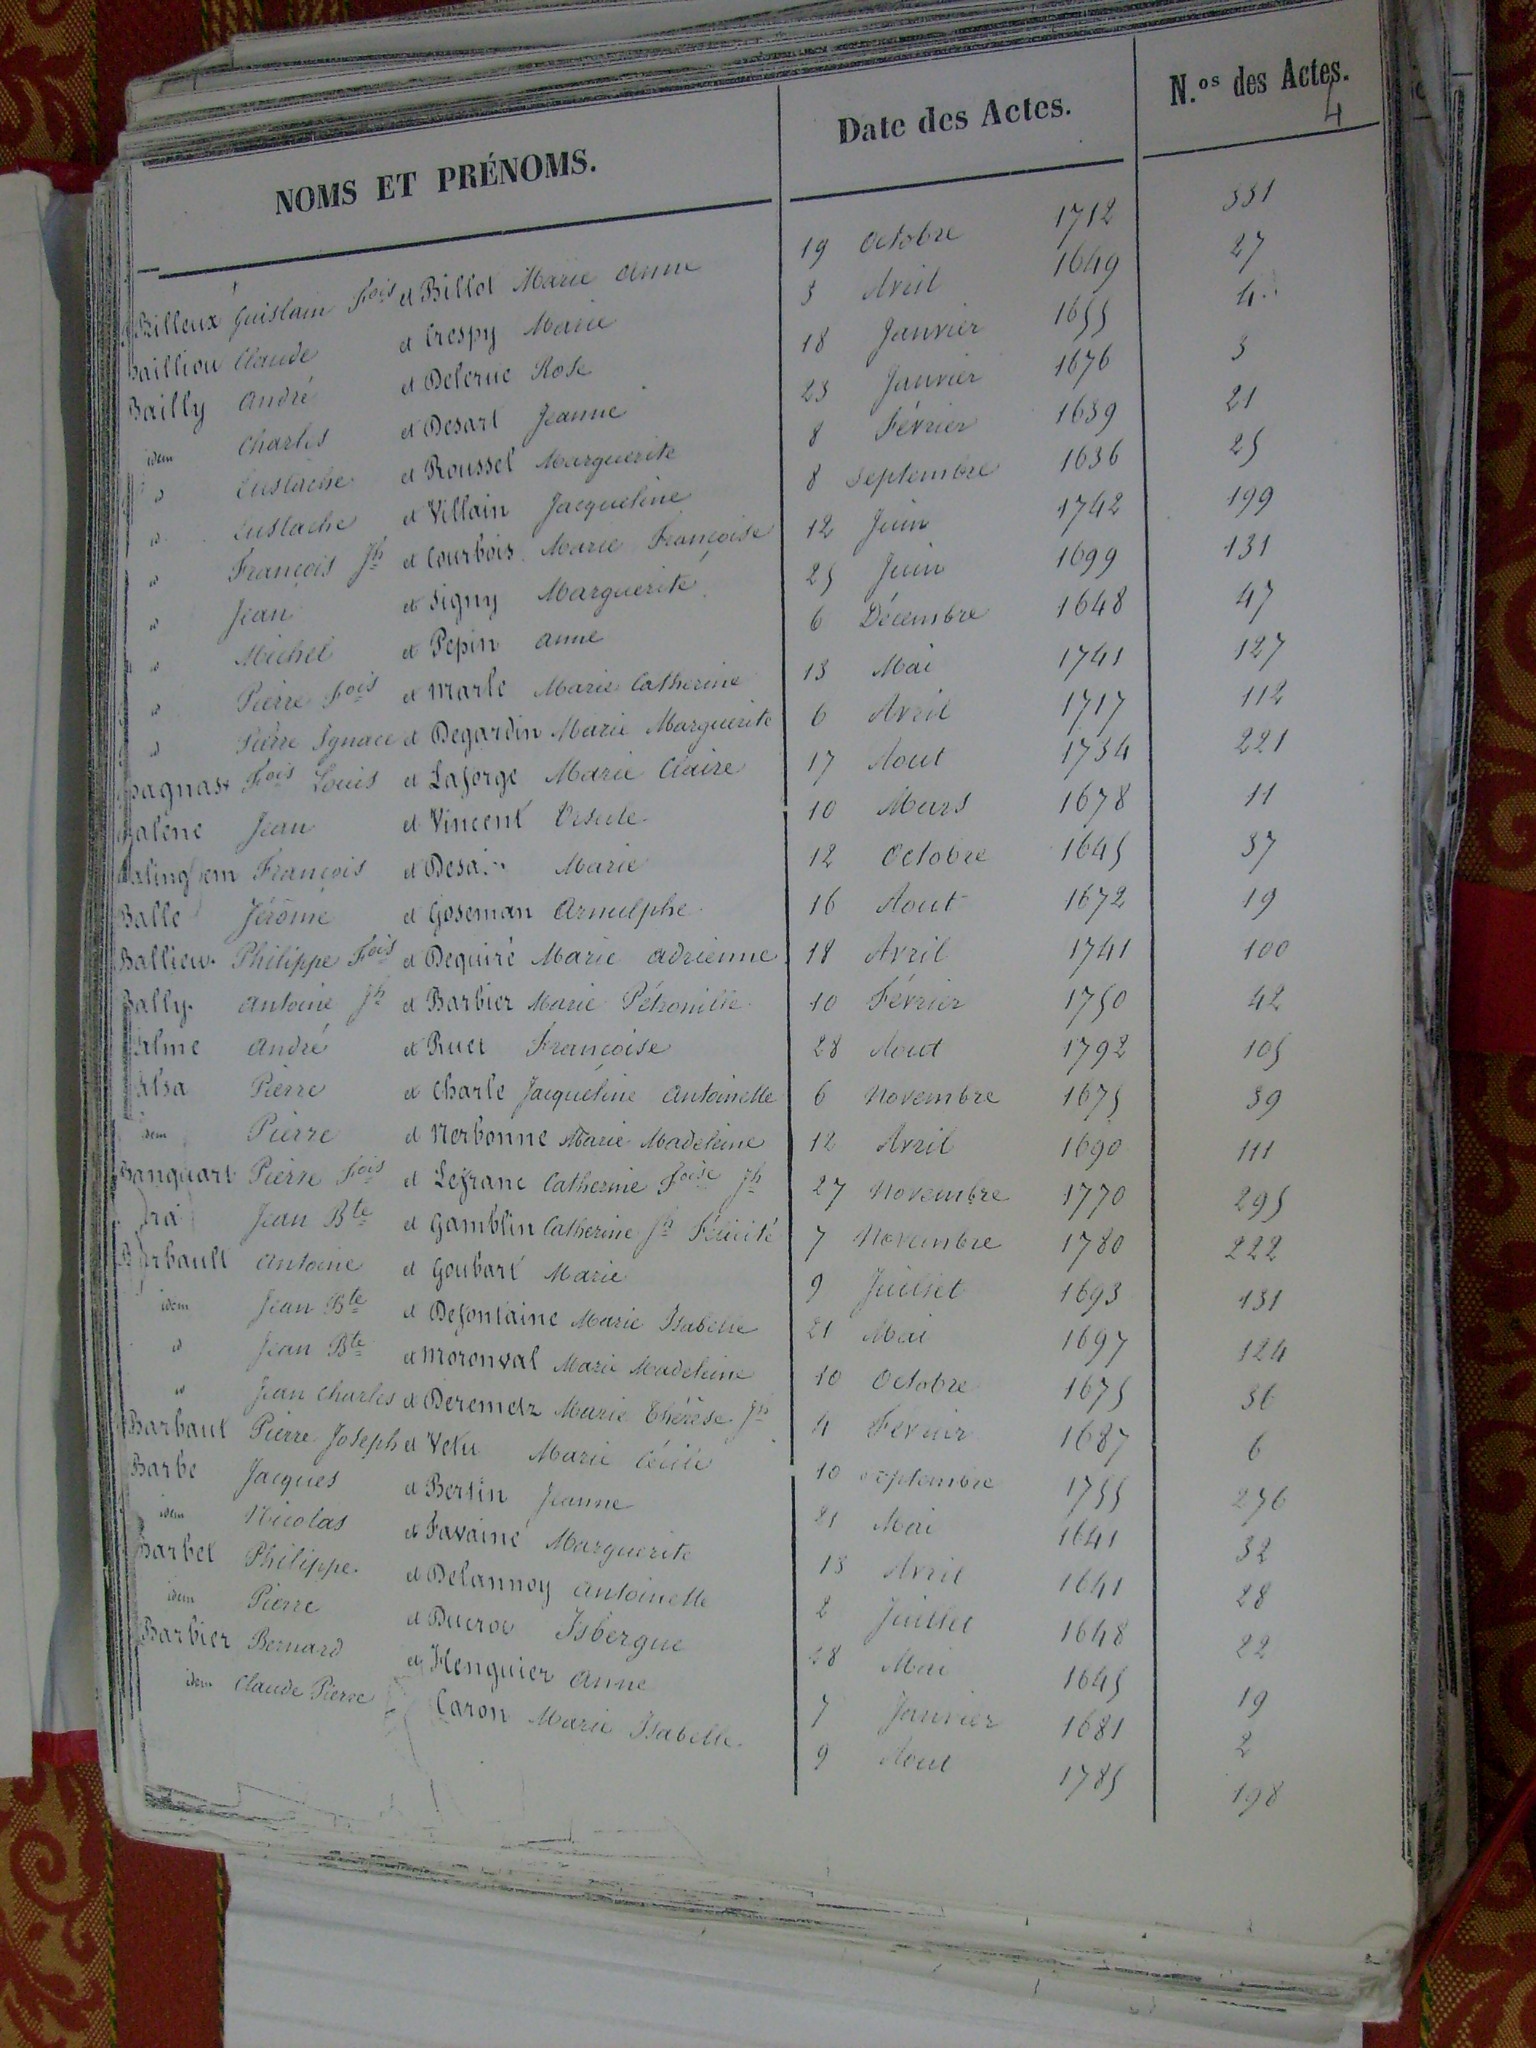 NOMS ET PRÉNOMS. Date des Actes. N.os des Actes.
4
Billeux Guislain Fois et Billot Marie Anne 19 Octobre 1712 331
Bailliou Claude et Crespy Marie 3 Avril 1649 27
Bailly André et Delerue Rose 18 Janvier 1655 4
idem Charles et Desart Jeanne 23 Janvier 1676 3
id Eustache et Roussel Marguerite 8 Février 1639 21
id Eustache et Villain Jacqueline 8 Septembre 1636 25
id François Jh et Courbois Marie Françoise 12 Juin 1742 199
id Jean et Signy Marguerite 25 Juin 1699 131
id Michel et Pepin Anne 6 Décembre 1648 47
id Pierre Fois et Marle Marie Catherine 13 Mai 1741 127
id Pierre Ignace et Degardin Marie Marguerite 6 Avril 1717 112
Fois Louis et Laforge Marie Claire 17 Aout 1734 221
Balène Jean et Vincent Ursule 10 Mars 1678 11
François et Marie 12 Octobre 1645 37
Balle Jérôme et Goseman Arnulphe 16 Aout 1672 19
Ballieu Philippe Fois et Dequiré Marie Adrienne 18 Avril 1741 100
Bally Antoine Jh et Barbier Marie Pétronille 10 Février 1750 42
André et Ruet Françoise 28 Aout 1792 105
Pierre et Charle Jacqueline Antoinette 6 Novembre 1675 39
idem Pierre et Nerbonne Marie Madeleine 12 Avril 1690 111
Banquart Pierre Fois et Lefranc Catherine Foise Jh 27 Novembre 1770 295
Jean Bte et Gamblin Catherine Jh Félicité 7 Novembre 1780 222
Barbault Antoine et Goubart Marie 9 Juillet 1693 131
idem Jean Bte et Defontaine Marie Isabelle 21 Mai 1697 124
id Jean Bte et Moronval Marie Madeleine 10 Octobre 1675 36
id Jean Charles et Deremetz Marie Thérèse Jh 4 Février 1687 6
Barbaut Pierre Joseph et Velu Marie Cécile 10 Septembre 1755 276
Barbe Jacques et Bertin Jeanne 21 Mai 1641 32
idem Nicolas et Favaine Marguerite 13 Avril 1641 28
Barbet Philippe et Delannoy Antoinette 2 Juillet 1648 22
idem Pierre et Ducroc Isbergue 28 Mai 1645 19
Barbier Bernard et Henguier Anne 7 Janvier 1681 2
idem Claude Pierre Caron Marie Isabelle 9 Aout 1785 198